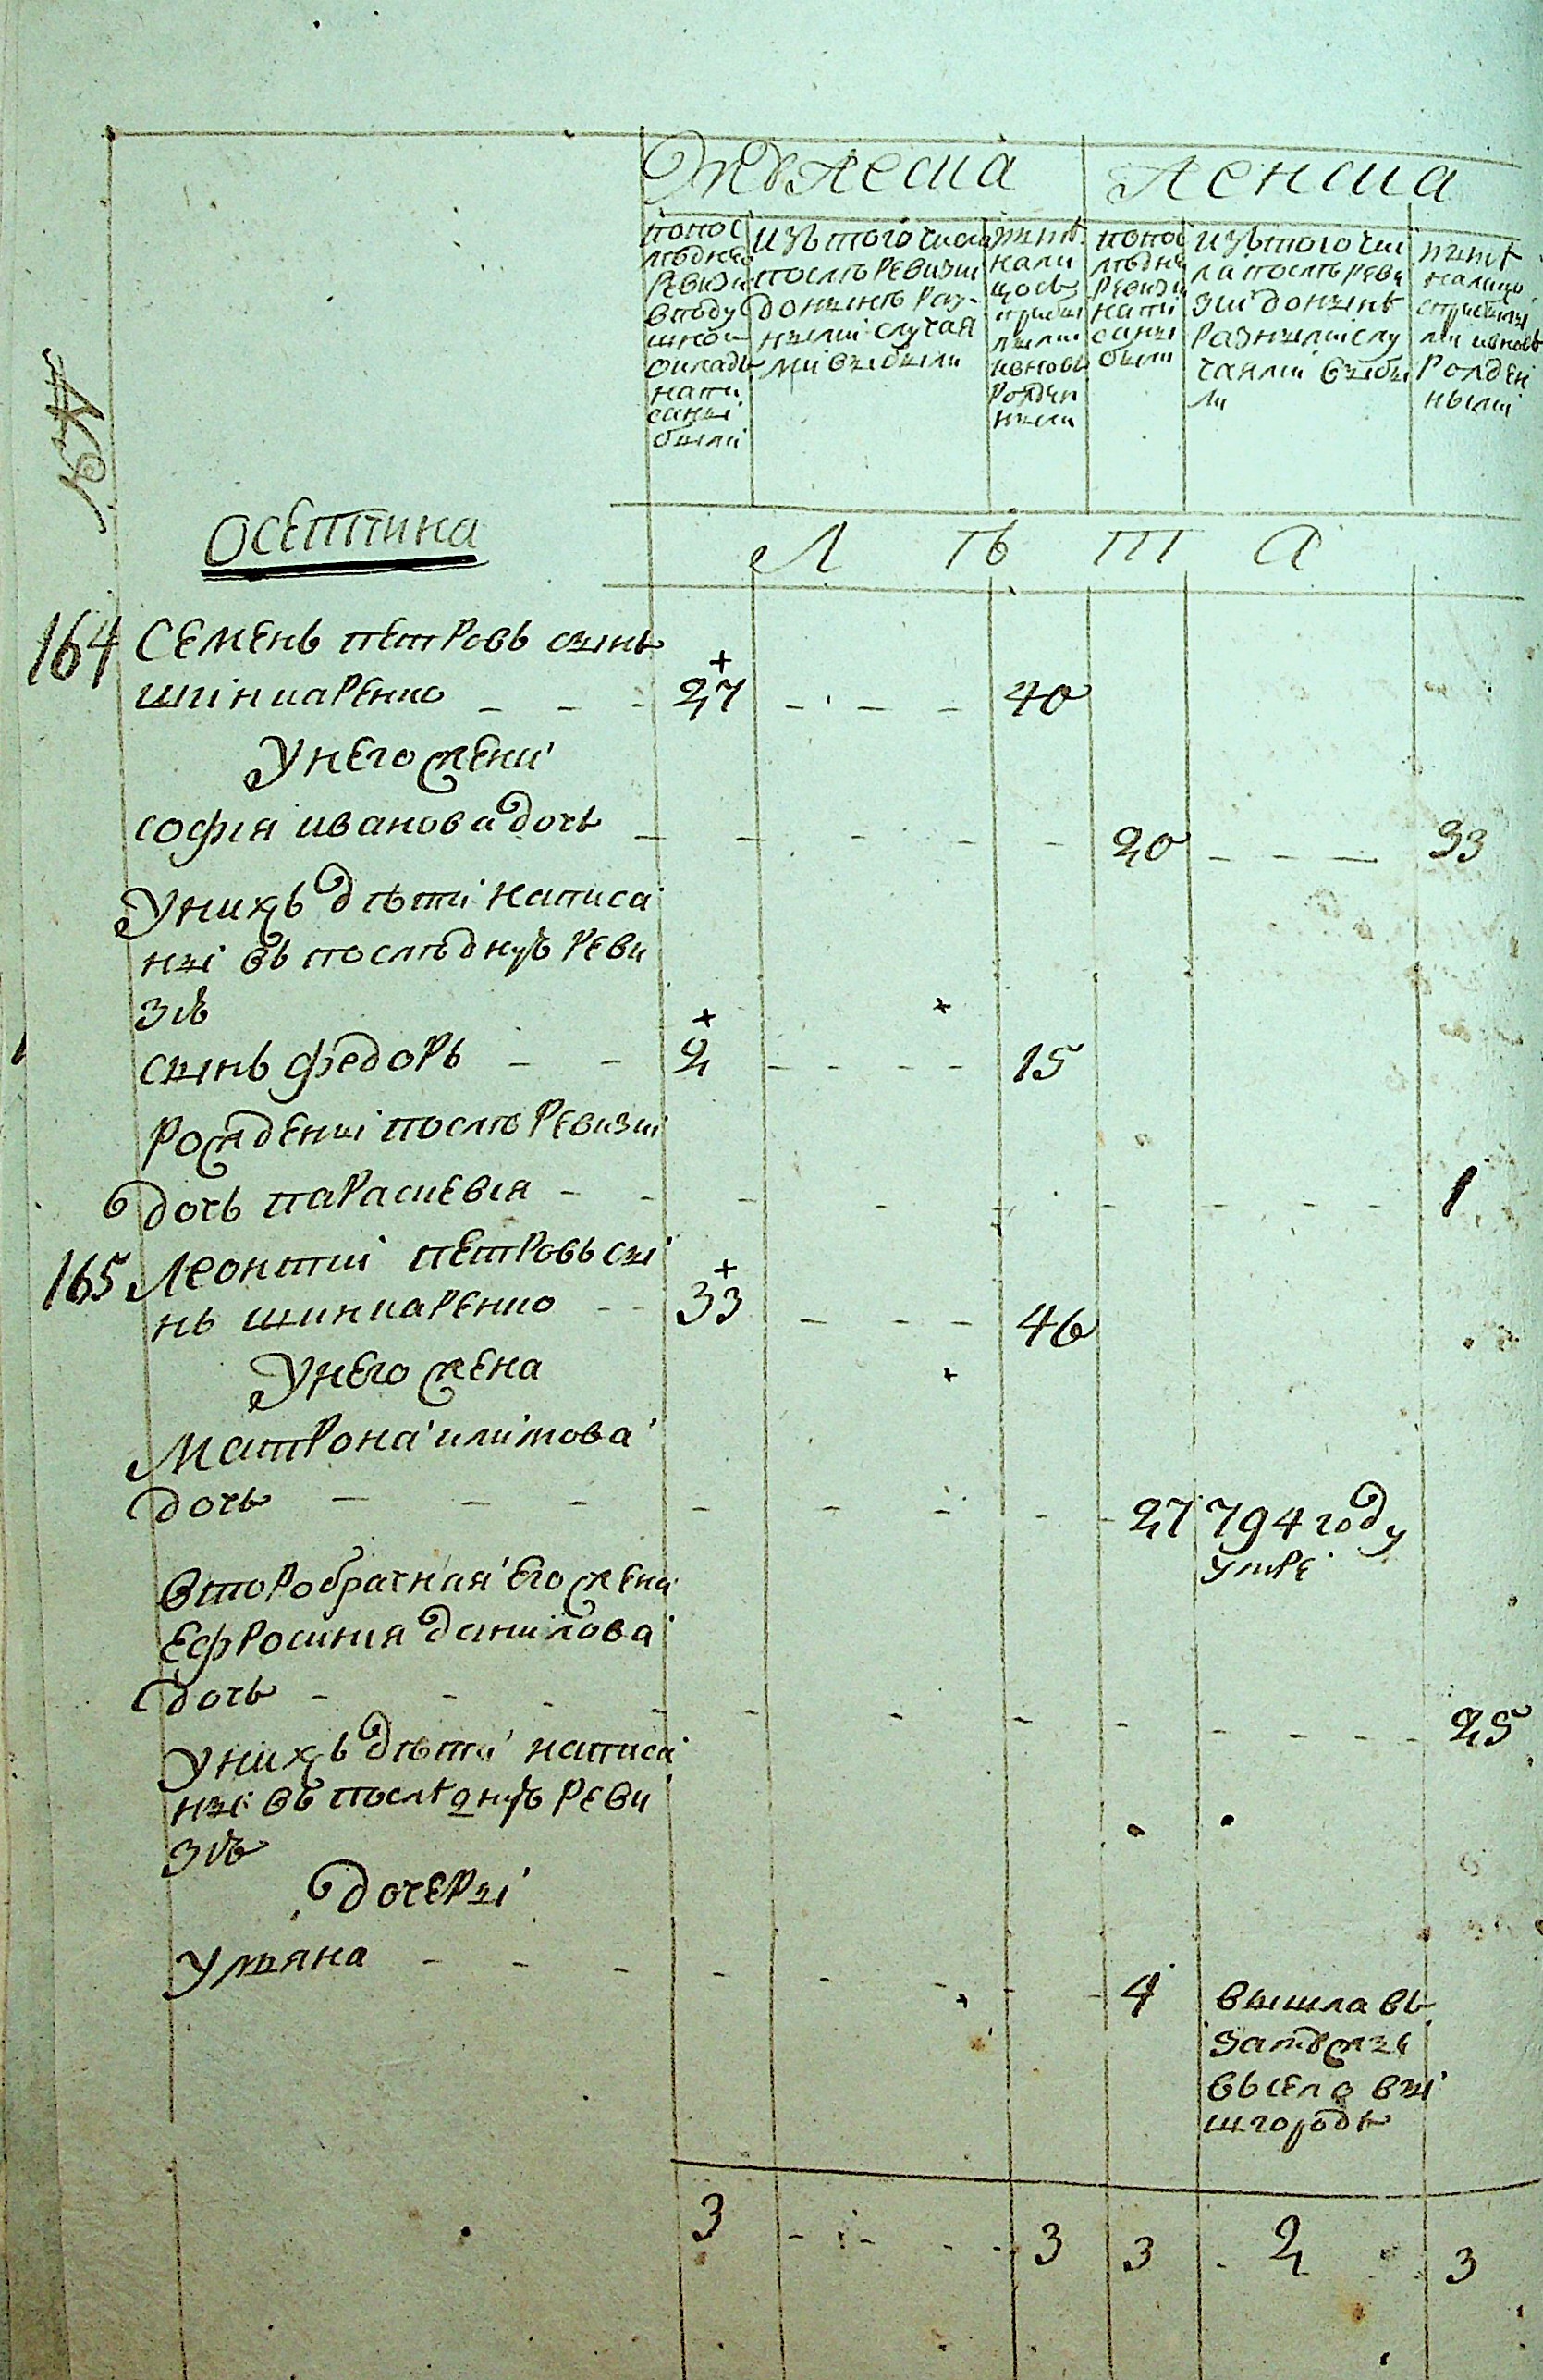 Мужеска
Женска
попос
лѣдней
Ревизи
вподу
шной
окладъ
напи
саны
были
изъ того числа
послѣ Ревизии
до нынѣ раз-
ными случая
ми выбыли
нынѣ
нали
цо съ
прибы
лыми
и вновь
рожден
ными
попос
лѣдне
Ревизи
напи
саны
были
изътого чис
ла послѣ реви
зии до нынѣ
разными слу
чаями выбы
ли
нынѣ
налицо
с прибылы
ми и вновь
рожден
ными
Осептина
Л ѣ т а
164 Семенъ петровъ сынъ
шинкаренко - - - 27 - - - 40
У него жени
софия иванова дочь - - - - - 20 - - - 33
У нихъ дѣти написа
ны въ последнуъ реви
зіѣ
сынъ федоръ - - 2 - - - - 15
рождены послѣ ревизии
дочь параскевия - - - - - - - - - 1
165 Леонтий петровъ сы
нъ шинкаренко - - 33 - - - 46
У него жена
Матрона климова
дочь - - - - - - - - 27 794 году
умре
второбрачная его жена
ефросиния данилова
дочь - - - - - - - - - - - - 25
У нихъ дѣти написа
ны въ послѣднуъ реви
зіѣ
дочеры
Ульяна - - - - - - - - 4 вышла въ
замужъ
въ село вы
шгородъ
3 - - - - 3 3 - 2 3